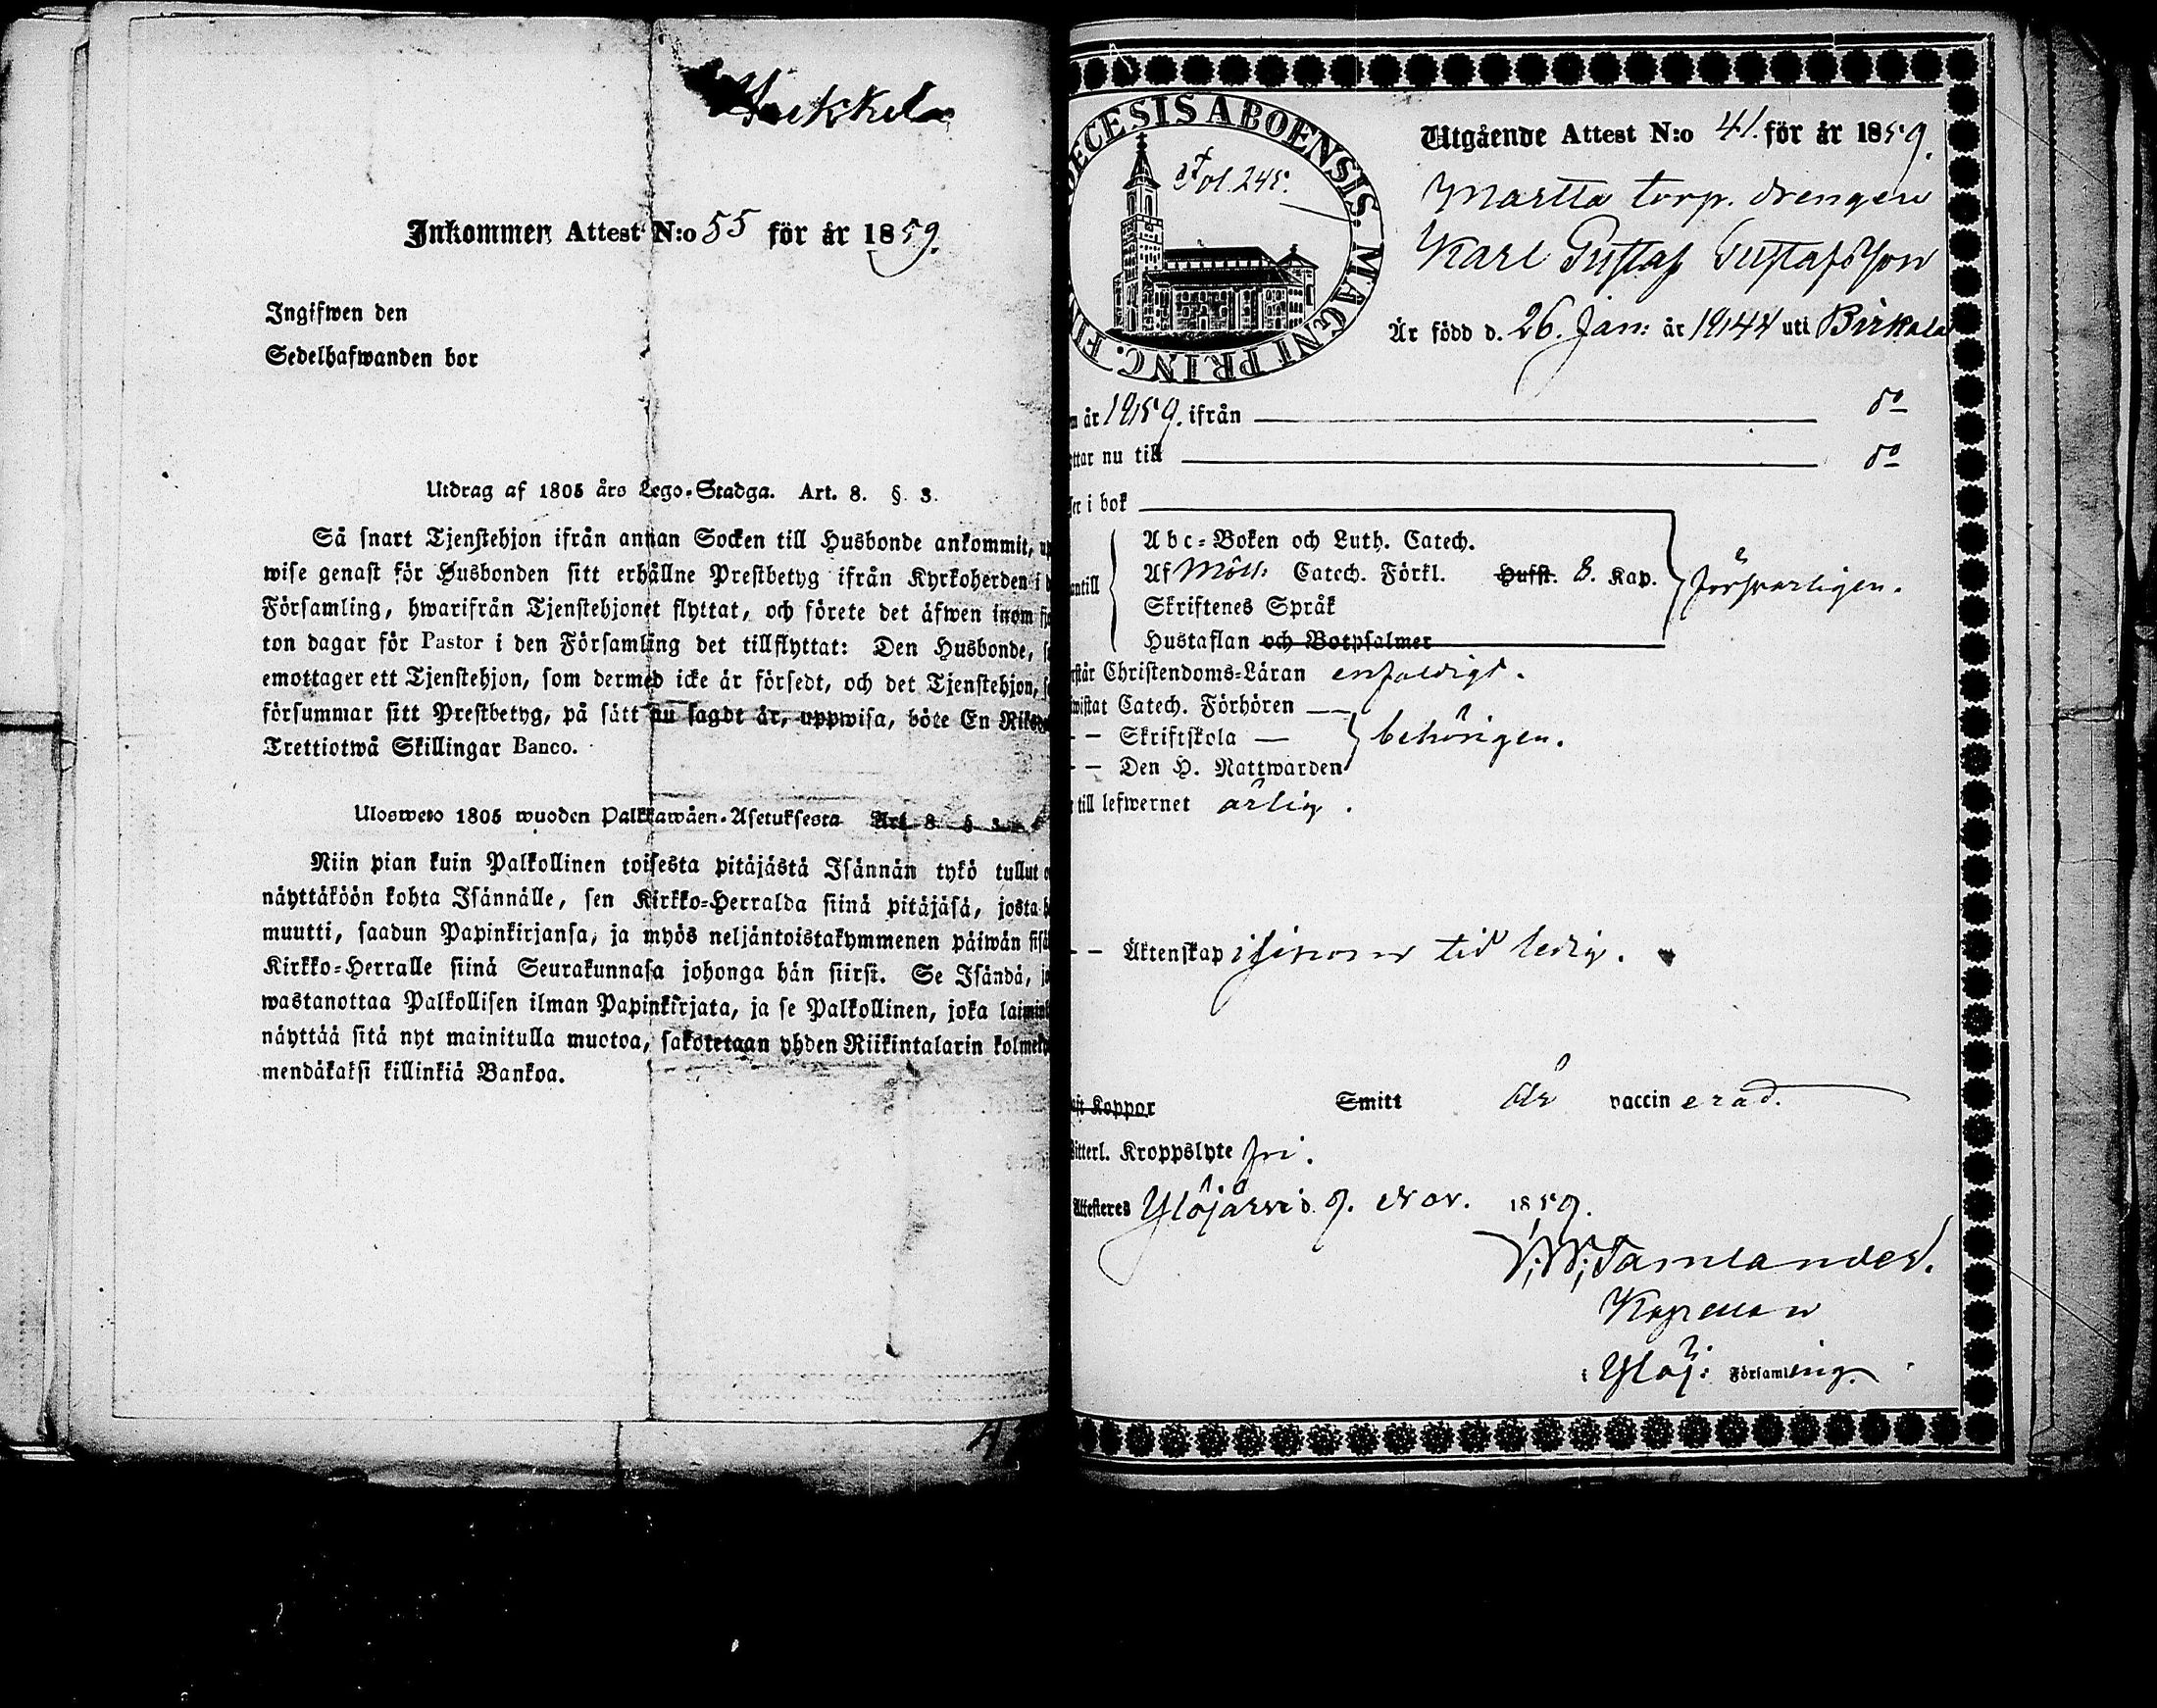 Inkommen Attest N:o 55 för år 1859.
Ingifwen den
Sedelhafwanden bor
Utdrag af 1805 års Lego-Stadga. Art. 8. §. 3.
Så snart Tjenstehjon ifrån annan Socken till Husbonde ankommit,
wise genast för Husbonden sitt erhållne Prestbetyg ifrån Kyrkoherden i
Församling, hwarifrån Tjenstehjonet flyttat, och förete det äfwen inom
ton dagar för Pastor i den Församling det tillflyttat: Den Husbonde,
emottager ett Tjenstehjon, som dermed icke är försedt, och det Tjenstehjon,
försummar sitt Prestbetyg, på sätt nu sagdt är, uppwisa, böte En
Trettiotwå Skillingar Banco.
Ulosweto 1805 wuoden Palkkawäen-Asetuksesta Art. 8 § 3
Niin pian kuin Palkollinen toisesta pitäjästä Isännän tykö tullut
näyttäköön kohta Isännälle, sen Kirkko-Herralda siinä pitäjäsä, josta
muutti, saadun Papinkirjansa, ja myös neljäntoistakymmenen päiwän
Kirkko-Herralle siinä Seurakunnasa johonga hän siirsi. Se Isändä,
wastanottaa Palkollisen ilman Papinkirjata, ja se Palkollinen, joka
näyttää sitä nyt mainitulla muotoa, sakotetaan yhden Riikintalarin
mendäkaksi killinkiä Bankoa.
DIOECESIS ABOENSIS. MAGNI PRINC.
Fol. 245.
Utgående Attest N:o 41. för år 1859.
Martta torp. drengen
Karl Gustaf Gustafsson
Är född d. 26. Jan: år 1844 uti Birkala
år 1859. ifrån
nu till
i bok
Abc-Boken och Luth. Catech.
Af Catech. Förkl. Hufst. 8. Kap. försvarligen.
Skriftenes Språk
Hustaflan och Botpsalmer
Christendoms-Läran enfaldigt.
Catech. Förhören
Skriftskola — behörigen.
Den H. Nattwarden
till lefwernet ärlig.
Äktenskap tid ledig.
Koppor Smitt är vaccinerad.
Kroppslyte fri.
Attesteres Ylöjärvi d. 9. Nov. 1859.
Kapellan
i Ylöj: Församling.